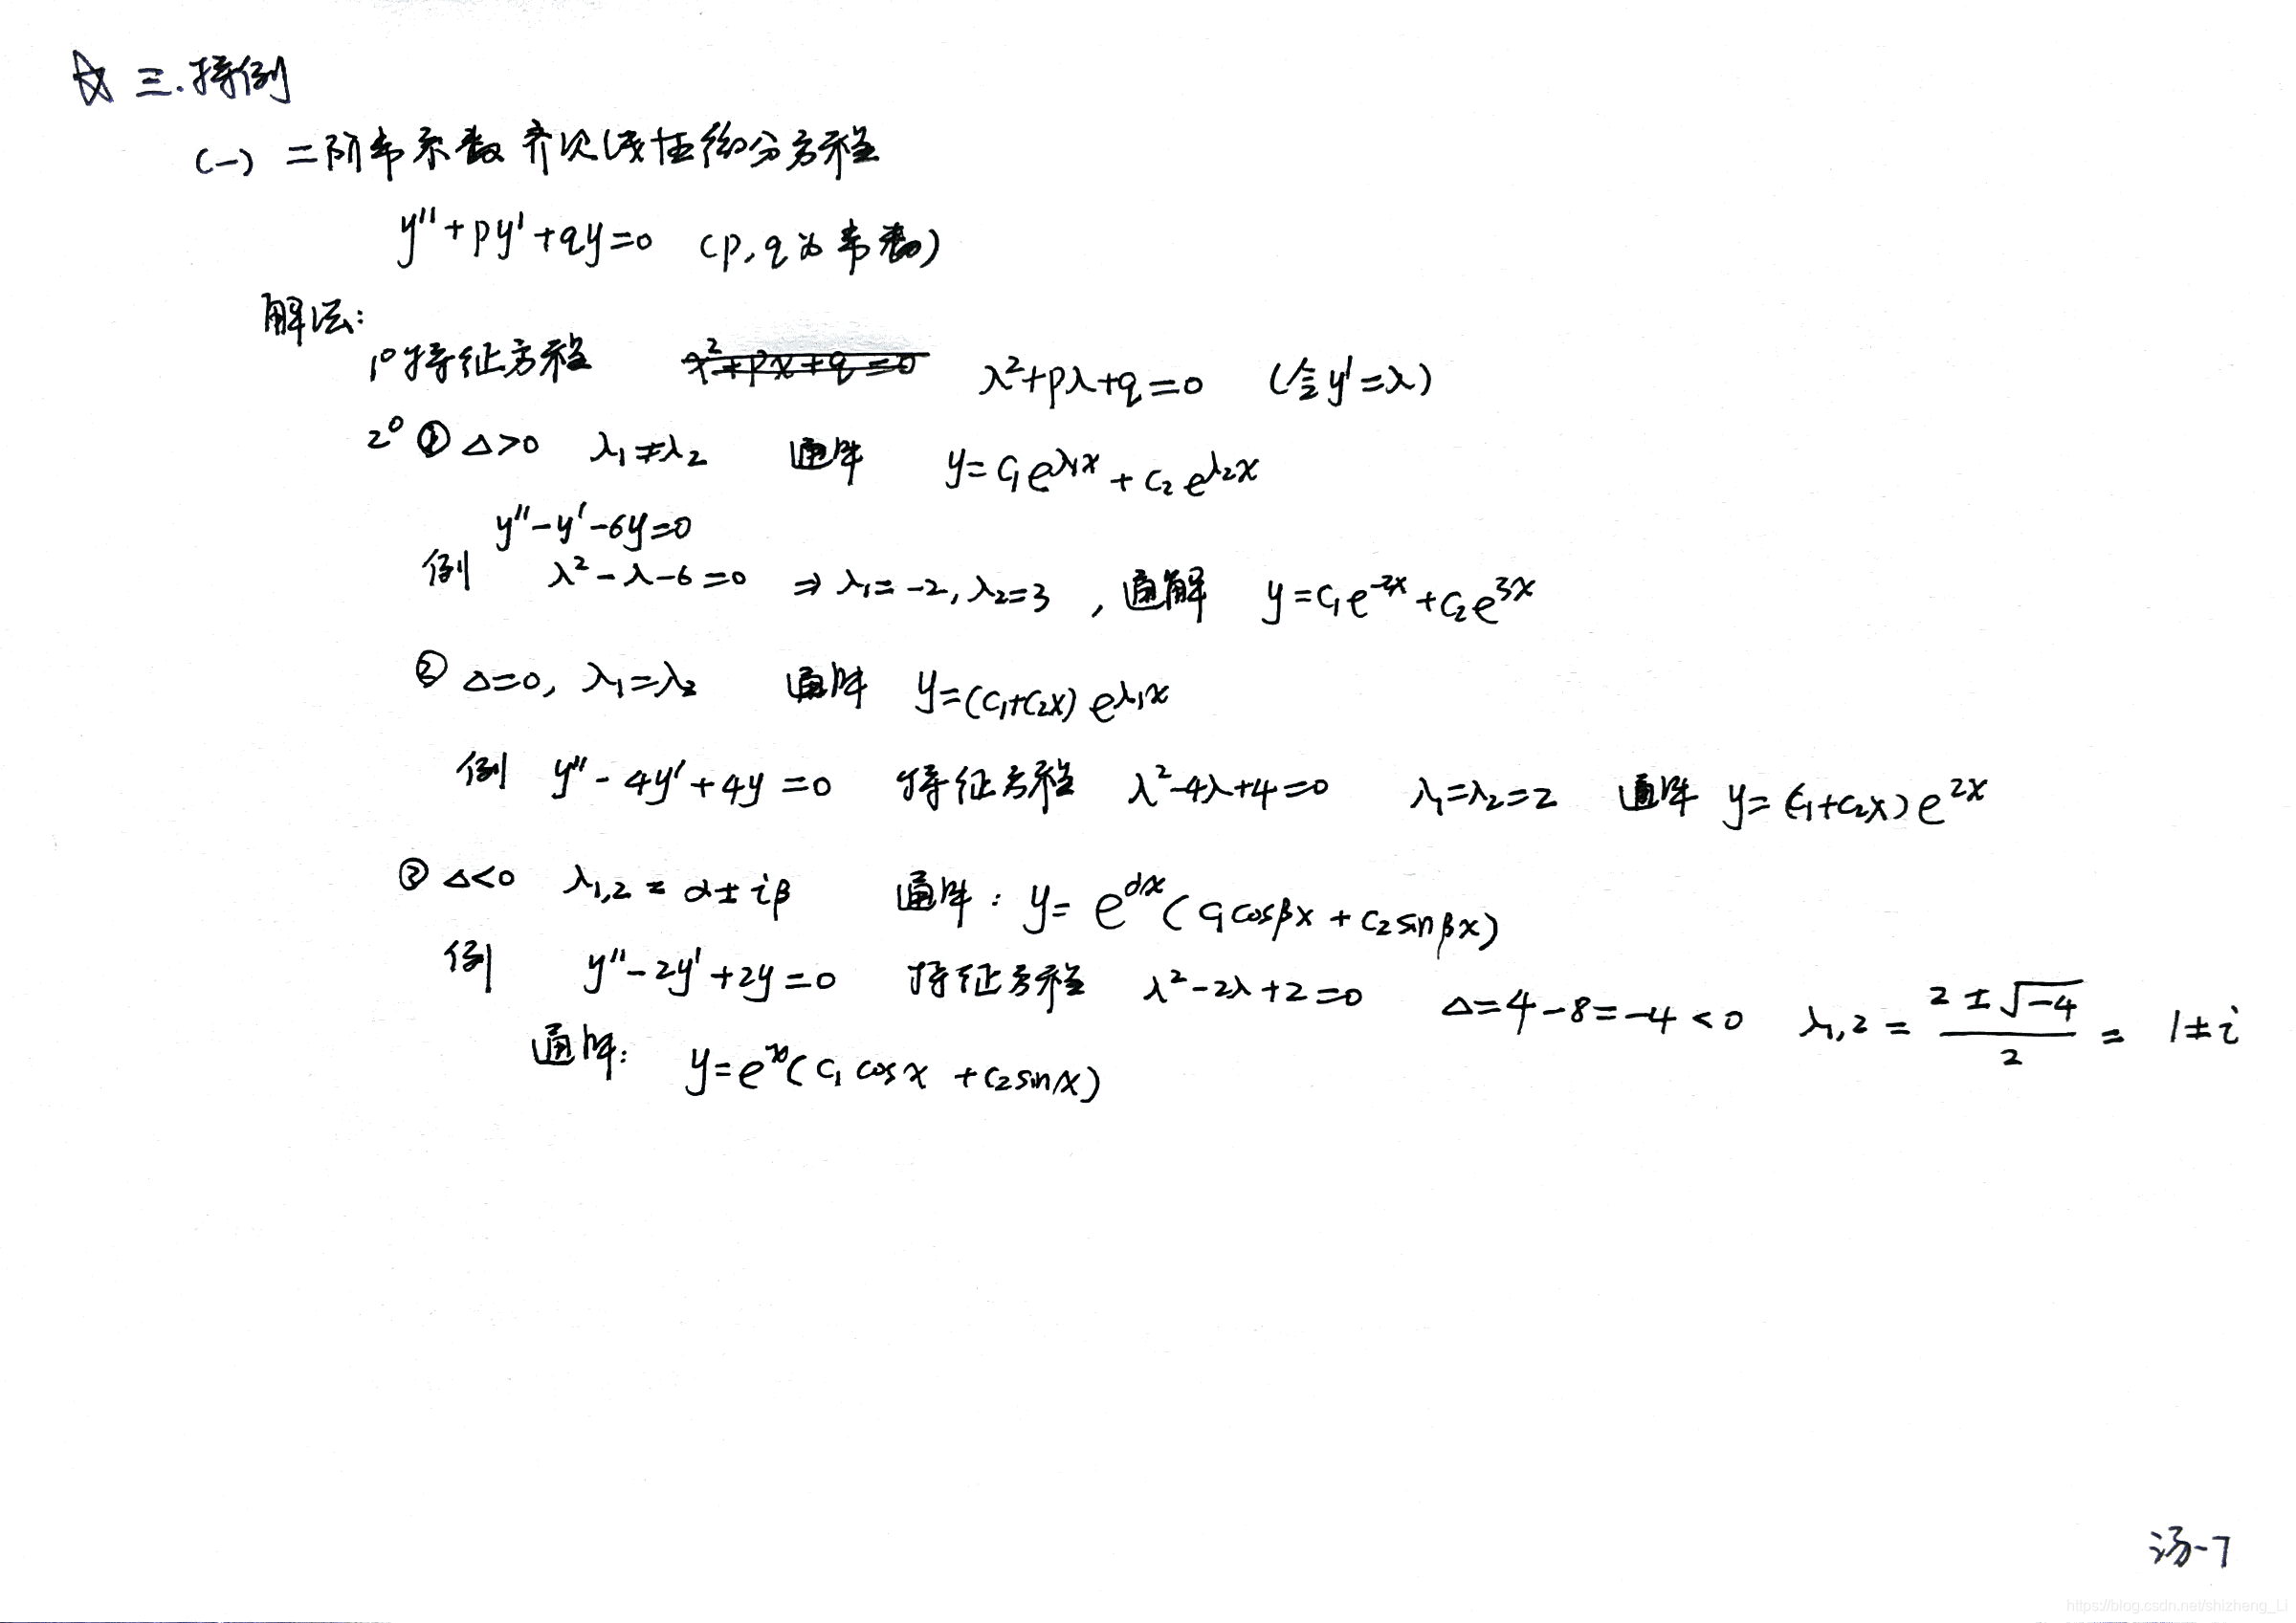 ☆ 三.特例
(一) 二阶常系数齐次线性微分方程
y''+py'+qy=0 (p,q为常数)
解法:
1° 特征方程 x²+px+q=0 λ²+pλ+q=0 (令y'=λ)
2° ① Δ>0 λ₁≠λ₂ 通解 y=C₁e^{λ₁x}+C₂e^{λ₂x}
y''-y'-6y=0
例 λ²-λ-6=0 ⇒ λ₁=-2, λ₂=3 , 通解 y=C₁e^{-2x}+C₂e^{3x}
② Δ=0, λ₁=λ₂ 通解 y=(C₁+C₂x)e^{λ₁x}
例 y''-4y'+4y=0 特征方程 λ²-4λ+4=0 λ₁=λ₂=2 通解 y=(C₁+C₂x)e^{2x}
③ Δ<0 λ₁,₂=α±iβ 通解: y=e^{αx}(C₁cosβx+C₂sinβx)
例 y''-2y'+2y=0 特征方程 λ²-2λ+2=0 Δ=4-8=-4<0 λ₁,₂=\frac{2±√-4}{2}=1±i
通解: y=e^x(C₁cosx+C₂sinx)
汤-7
https://blog.csdn.net/shizheng_Li